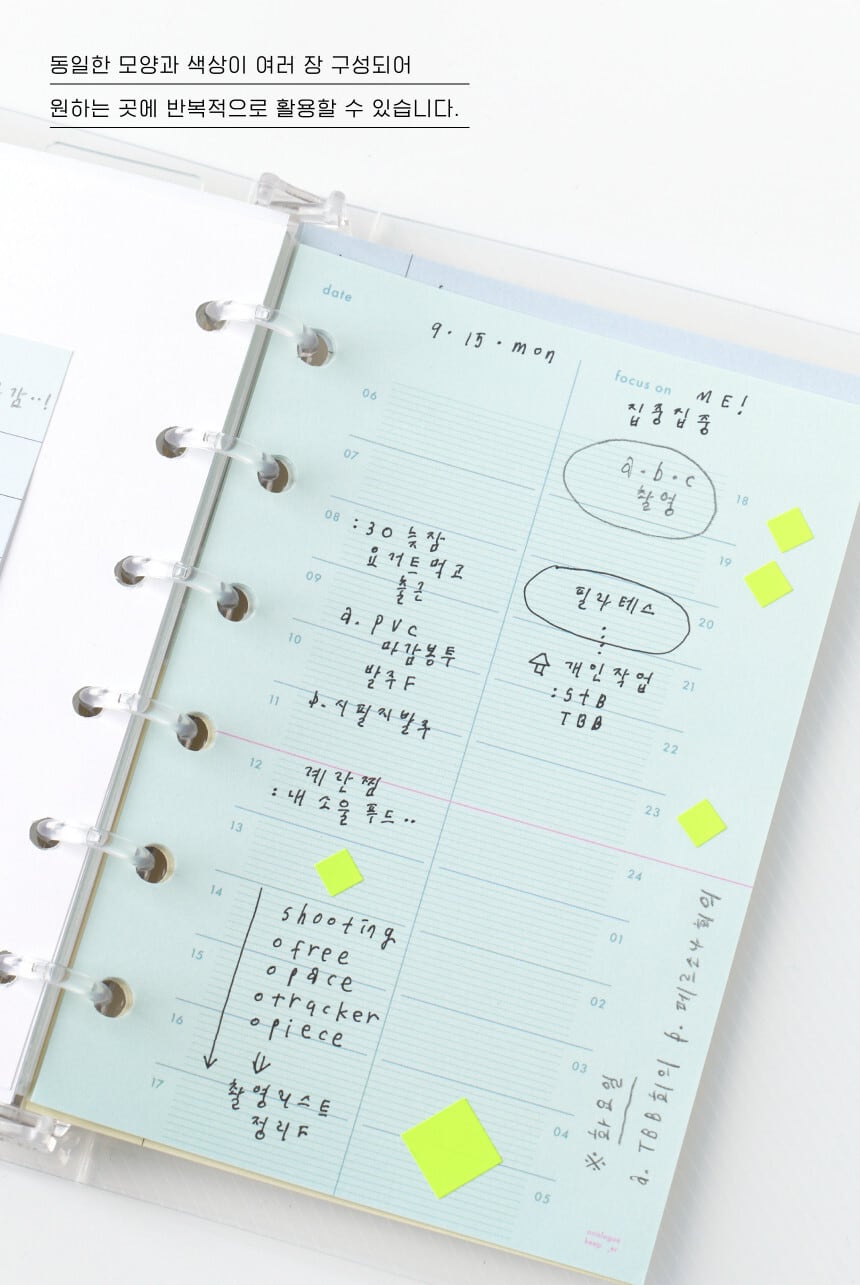 동일한 모양과 색상이 여러 장 구성되어
원하는 곳에 반복적으로 활용할 수 있습니다.
감..!
date
9.15.mon
06
07
08
:30 늦잠
요거트먹고
출근
09
a. pvc
마감봉투
발주F
10
11
b. 시필지발주
12
계란찜
:내 소울 푸드..
13
14
shooting
o free
o pace
o tracker
o piece
15
16
17
촬영리스트
정리F
focus on
ME!
집중집중
a.b.c
촬영
18
19
필라테스
20
개인작업
:StB
TBB
21
22
23
24
01
02
03
04
05
※ 화요일
a. TBB회의 b. 페르소나 회의
analogue
keeper